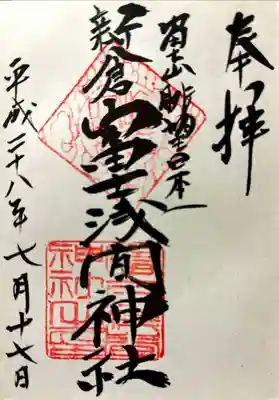 奉拝
富士山眺望日本一
新倉富士浅間神社
平成二十八年七月十七日